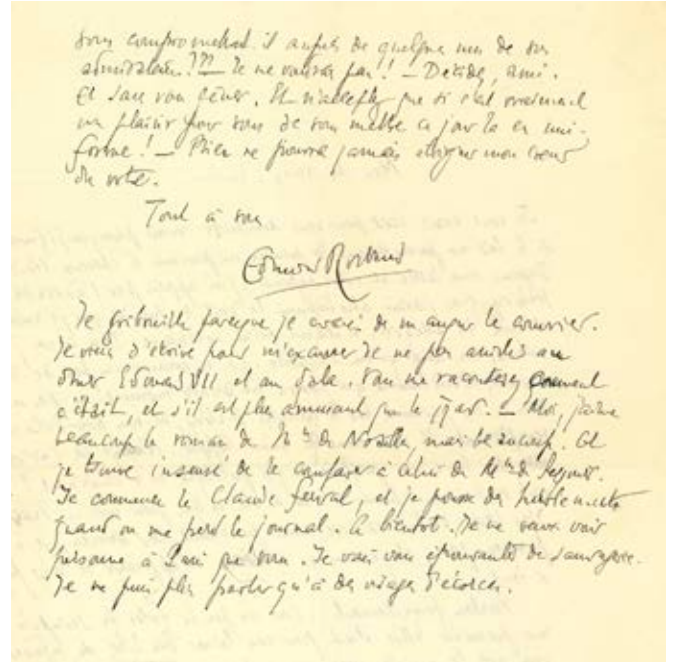 vous compromettrait-il auprès de quelques uns de vos
admirateurs ??? — Je ne voudrais pas ! — Décidez, ami.
Et sans vous gêner. Et n'acceptez que si c'est vraiment
un plaisir pour vous de vous mettre ce jour là en uni-
forme ! — Rien ne pourra jamais éloigner mon cœur
du vôtre.
Tout à vous
Edmond Rostand
Je gribouille parceque je crains de manquer le courrier.
Je viens d'écrire pour m'excuser de ne pas assister au
dîner Edouard VII et au gala. Vous me raconterez comment
c'était, et s'il est plus amusant que le Tzar. — Moi, j'aime
beaucoup le roman de Mme de Noailles, mais beaucoup. Et
je trouve insensé de le comparer à celui de Mme de
Je commence le Claude Ferval, et je pousse des hurlements
quand on me perd le journal. A bientôt. Je ne veux voir
personne à que vous. Je vais vous épouvanter de sauvagerie.
Je ne puis plus parler qu'à des visages d'écorces.